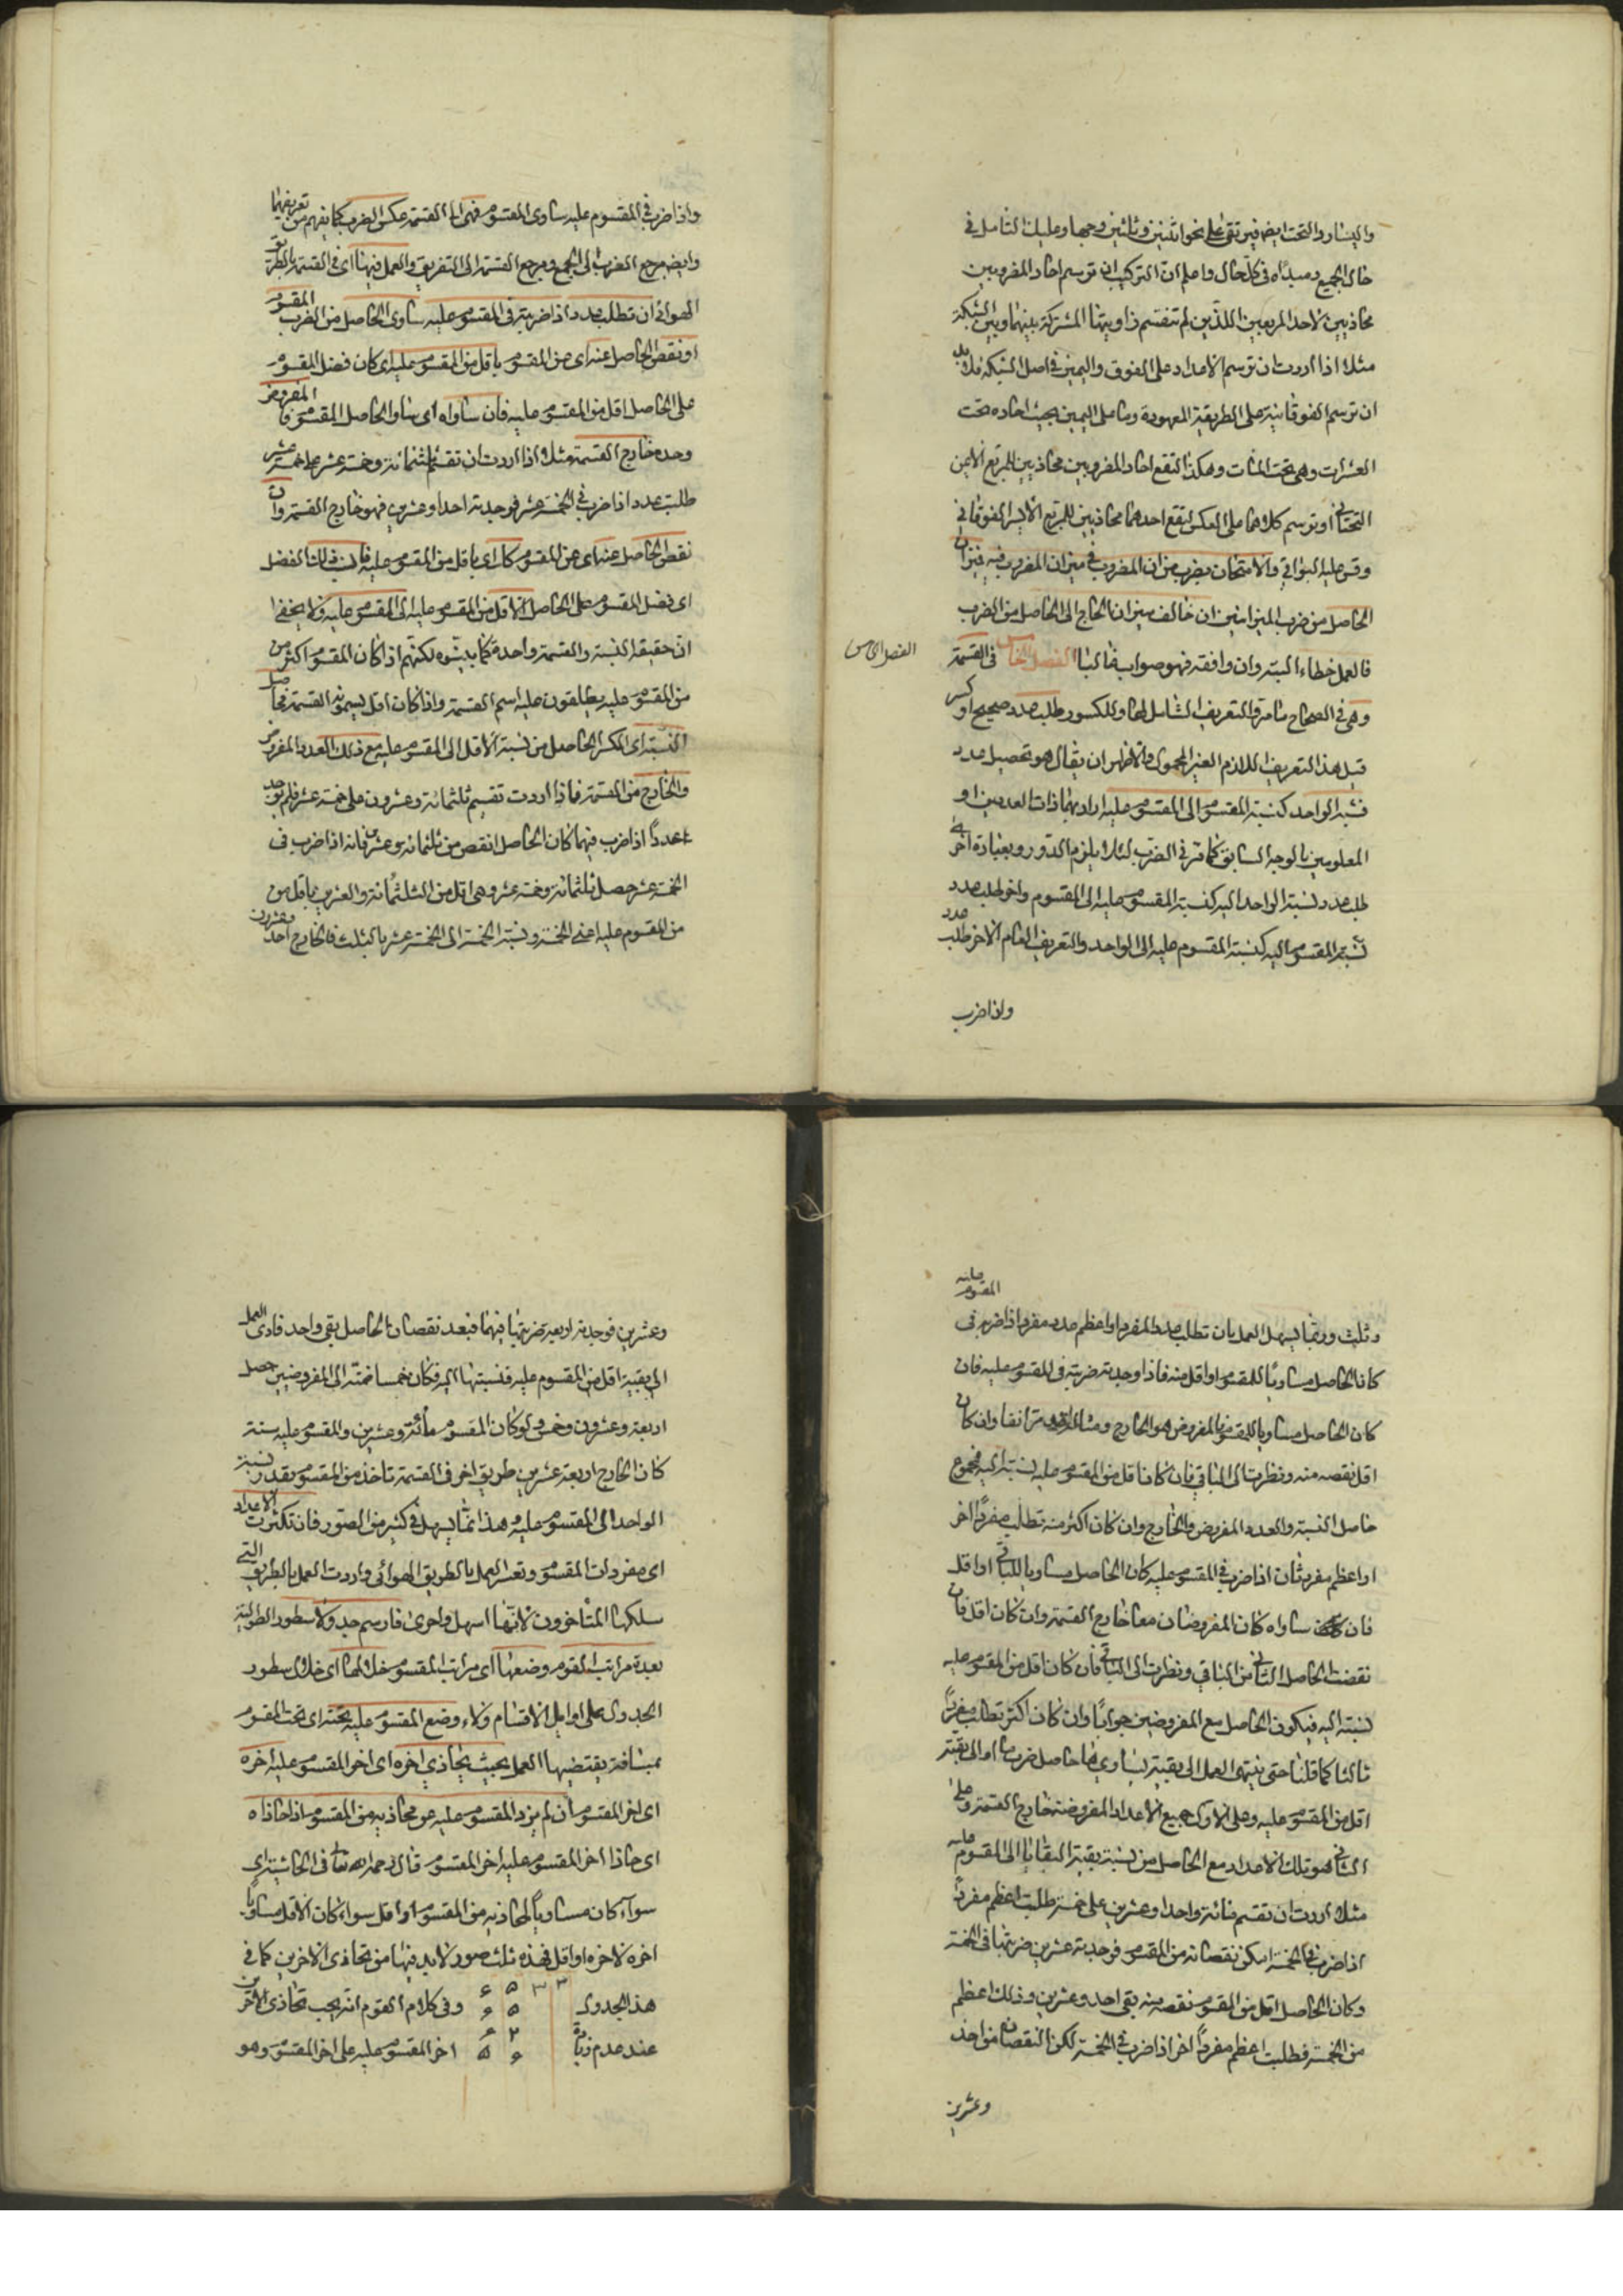 واليسار والتحت ايضا فيرتقى على نحو اثنين وثلثين وجها وعليك التأمل في
حال الجميع ومبدأه في كل حال واعلم ان التركيب ان ترسم احاد المضروبين
محاذيين لاحد المربعين اللذين لم تنقسم زاويتها المشتركة بينهما وبين الشبكة
مثلا اذا اردت ان ترسم الاعداد على الفوق واليمين في اصل الشبكة فلابد
ان ترسم الفوقانية على الطريقة المعهودة وما على اليمين بحيث احاده تحت
العشرات وهي تحت المئات وهكذا لتقع احاد المضروبين محاذيين للمربع الايمن
التحتاني او ترسم كلاهما على العكس لتقع احدهما محاذيين للمربع الايسر الفوقاني
وقس عليه البواقي والامتحان بضرب ميزان المضروب في ميزان المضروب فيه فميزان
الحاصل من ضرب الميزانين ان خالف ميزان الخارج الى الحاصل من الضرب
فالعمل خطاء البتة وان وافقه فهو صواب غالبا الفصل الخامس في القسمة
الفصل الخامس
وهي في الصحاح مامرة والتعريف الشامل لها وللكسور طلب عدد صحيح او كسر
قيل هذا التعريف اللازم الغير المحمول والاظهر ان يقال هو تحصيل عدد
نسبة الواحد كنسبة المقسوم الى المقسوم عليه اراد بهما ذات العددين او
المعلومين بالوجه السابق كما مر في الضرب لئلا يلزم الدور وبعبارة اخرى
طلب عدد نسبة الواحد اليه كنسبة المقسوم عليه الى المقسوم واخر طلب عدد
نسبة المقسوم اليه كنسبة المقسوم عليه الى الواحد والتعريف العام الاخر طلب عدد
واذا ضرب
واذا ضرب في المقسوم عليه ساوى المقسوم فهي اي القسمة عكس الضرب كما يفهم من تعريفهما
وايضا مرجع الضرب الى الجمع ومرجع القسمة الى التفريق والعمل فيها اي في القسمة بالطريق
الهوائي ان تطلب عددا اذا ضربته في المقسوم عليه ساوى الحاصل من الضرب المقسوم
او نقص الحاصل عنه اي من المقسوم باقل من المقسوم عليه اي كان فضل المقسوم
على الحاصل اقل من المقسوم عليه فان ساواه اي ساوا الحاصل المقسوم فالمفروض
وحده خارج القسمة مثلا اذا اردت ان تقسم ثلثمائة وخمسة عشر على خمسة عشر
طلبت عددا اذا ضرب في الخمسة عشر فوجدته احدا وعشرين فهو خارج القسمة وان
نقص الحاصل عنه اي من المقسوم كان اي باقل من المقسوم عليه فانسب ذلك الفضل
اي فضل المقسوم على الحاصل الاقل من المقسوم عليه الى المقسوم عليه ولا يخفى
ان حقيقة النسبة والقسمة واحدة كما بينوه لكنهم اذا كان المقسوم اكثر من
من المقسوم عليه يطلقون عليه اسم القسمة واذا كان اقل يسمونه القسمة فحاصل
النسبة اي الكسر الحاصل من نسبة الاقل الى المقسوم عليه مع ذلك العدد المفروض
والخارج من القسمة فاذا اردت تقسيم ثلثمائة وعشرون على خمسة عشر فلم يوجد
عددا اذا ضرب فيهما كان الحاصل انقص من ثلثمائة وعشرين فانه اذا ضرب في
الخمسة عشر حصل ثلثمائة وخمسة عشر وهي اقل من الثلثمائة والعشرين باقل من
من المقسوم عليه اعني الخمسة ونسبة الخمسة الى الخمسة عشر بالثلث فالخارج احد وعشرون
وثلث وربما يسهل العمل بان تطلب عدد المفرد او اعظم عدد مفرد اذا ضربته في المقسوم عليه
كان الحاصل مساويا للمقسوم او اقل منه فاذا وجدته ضربته في المقسوم عليه فان
كان الحاصل مساويا للمقسوم فالمفروض هو الخارج ومثاله قد مر انفا وان كان
اقل نقصه منه ونظرت الى الباقي فان كان اقل من المقسوم عليه نسبته اليه فمجموع
حاصل النسبة والعدد المفروض والخارج وان كان اكثر منه تطلب مفردا اخر
او اعظم مفرد ثان اذا ضرب في المقسوم عليه كان الحاصل مساويا للباقي او اقل
فان ساواه كان المفروضان معا خارج القسمة وان كان اقل فان
نقصت الحاصل الثاني من الباقي ونظرت الى الباقي فان كان اقل من المقسوم عليه
نسبته اليه فيكون الحاصل مع المفروضين جوابا وان كان اكثر تطلب مفردا
ثالثا كما قلنا حتى ينتهي العمل الى بقية يساويها حاصل ضرب ما او الى بقية
اقل من المقسوم عليه وعلى الاول جميع الاعداد المفروضة خارج القسمة وعلى
الثاني هو تلك الاعداد مع الحاصل من نسبة بقية البقايا الى المقسوم عليه
مثلا اردت ان تقسم مائة واحدا وعشرين على خمسة طلبت اعظم مفردا
اذا ضرب في الخمسة امكن نقصانه من المقسوم فوجدته عشرين ضربتها في الخمسة
وكان الحاصل اقل من المقسوم نقصه منه بقي احد وعشرين وذلك اعظم
من الخمسة فطلبت اعظم مفردا اخر اذا ضرب في الخمسة لكن النقصان من احد
وعشرين
وعشرين فوجدته اربعة ضربتها فيهما فبعد نقصان الحاصل بقي واحد فادى العمل
الى بقية اقل من المقسوم عليه فنسبتها اليه فكان خمسا ضمته الى المفروضين حصل
اربعة وعشرون وخمس ولو كان المقسوم مائة وعشرين والمقسوم عليه ستة
كان الخارج اربعة عشرين طريق اخر في القسمة تاخذ من المقسوم بقدر نسبة
الواحد الى المقسوم عليه وهذا انما يسهل في كثير من الصور فان تكثرت الاعداد
اي مفردات المقسوم وتعسر العمل بالطريق الهوائي واردت العمل بالطريق التي
سلكها المتاخرون لانها اسهل واحرى فارسم جدولا سطور الطولية
بعدة مراتب المقسوم وضعها اي مراتب المقسوم خلالها اي خلال سطور
الجدول على اوايل الاقسام ولاء وضع المقسوم عليه تحته اي تحت المقسوم
بمسافة يقتضيها العمل بحيث يحاذي اخره اي اخر المقسوم عليه اخره
اي اخر المقسوم ان لم يزد المقسوم عليه عن محاذيه من المقسوم اذا حاذاه
اي حاذا اخر المقسوم عليه اخر المقسوم قال رحمه الله تعالى في الحاشية اي
سواء كان مساويا لمحاذيه من المقسوم او اقل سواء كان الاقل مساويا
اخره لاخره او اقل فهذه ثلث صور لابد فيها من تحاذى الاخرين كما في
هذا الجدول وفي كلام القوم انه يجب تحاذى الاخرين
عند عدم زيادة اخر المقسوم عليه على اخر المقسوم وهو